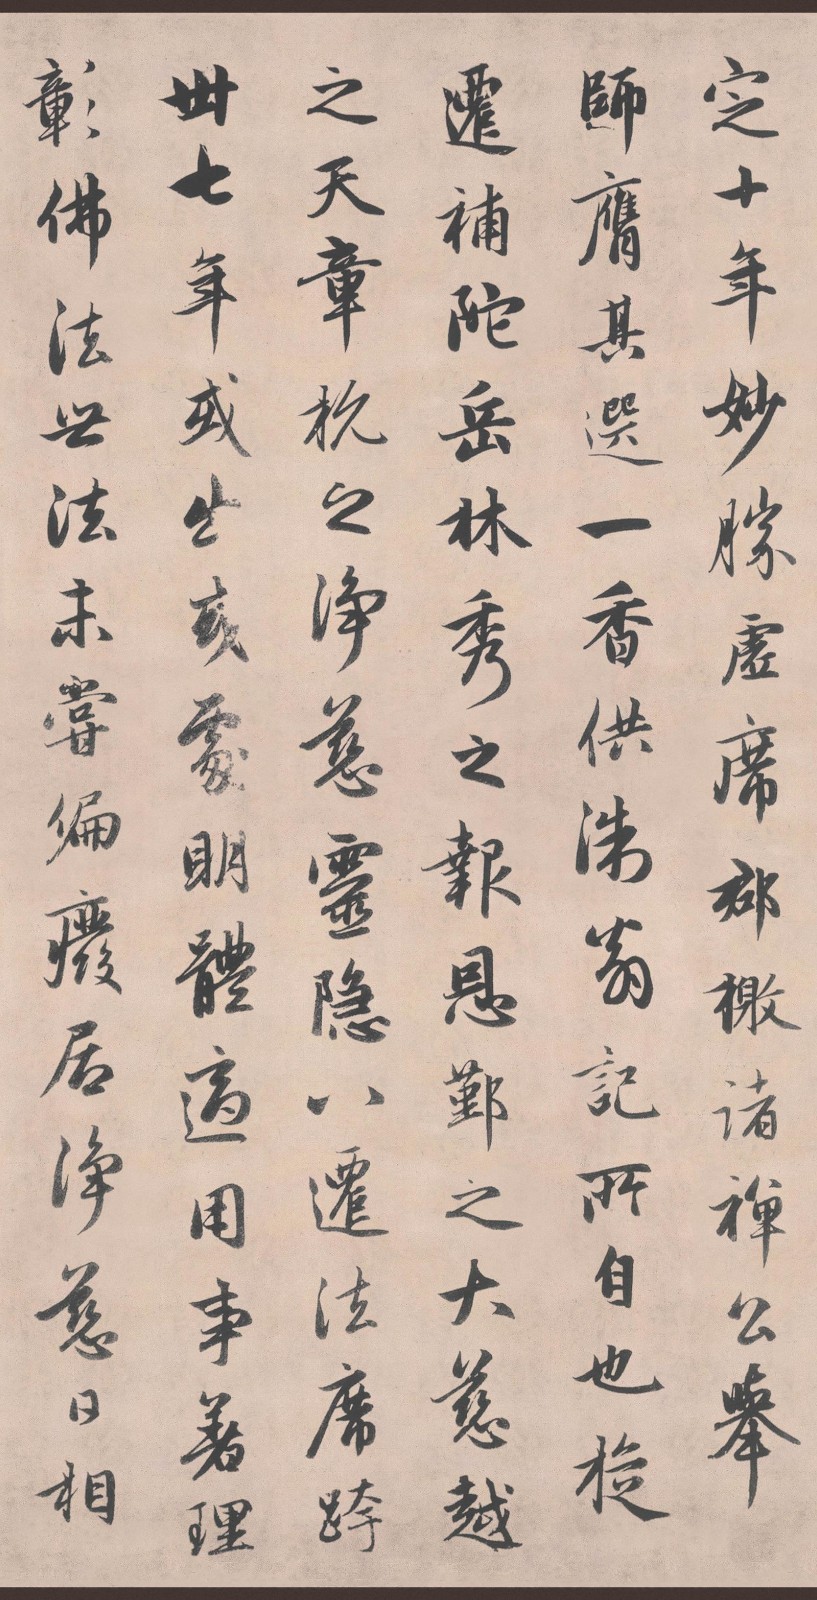 定十年妙勝虛席郡檄諸禪公舉
師膺其選一香供洙翁記所自也從
遷補陀岳林秀之報恩鄞之大慈越
之天章杭之淨慈靈隱八遷法席跨
卌七年或出或處明體適用事著理
彰佛法世法未嘗偏廢居淨慈日相